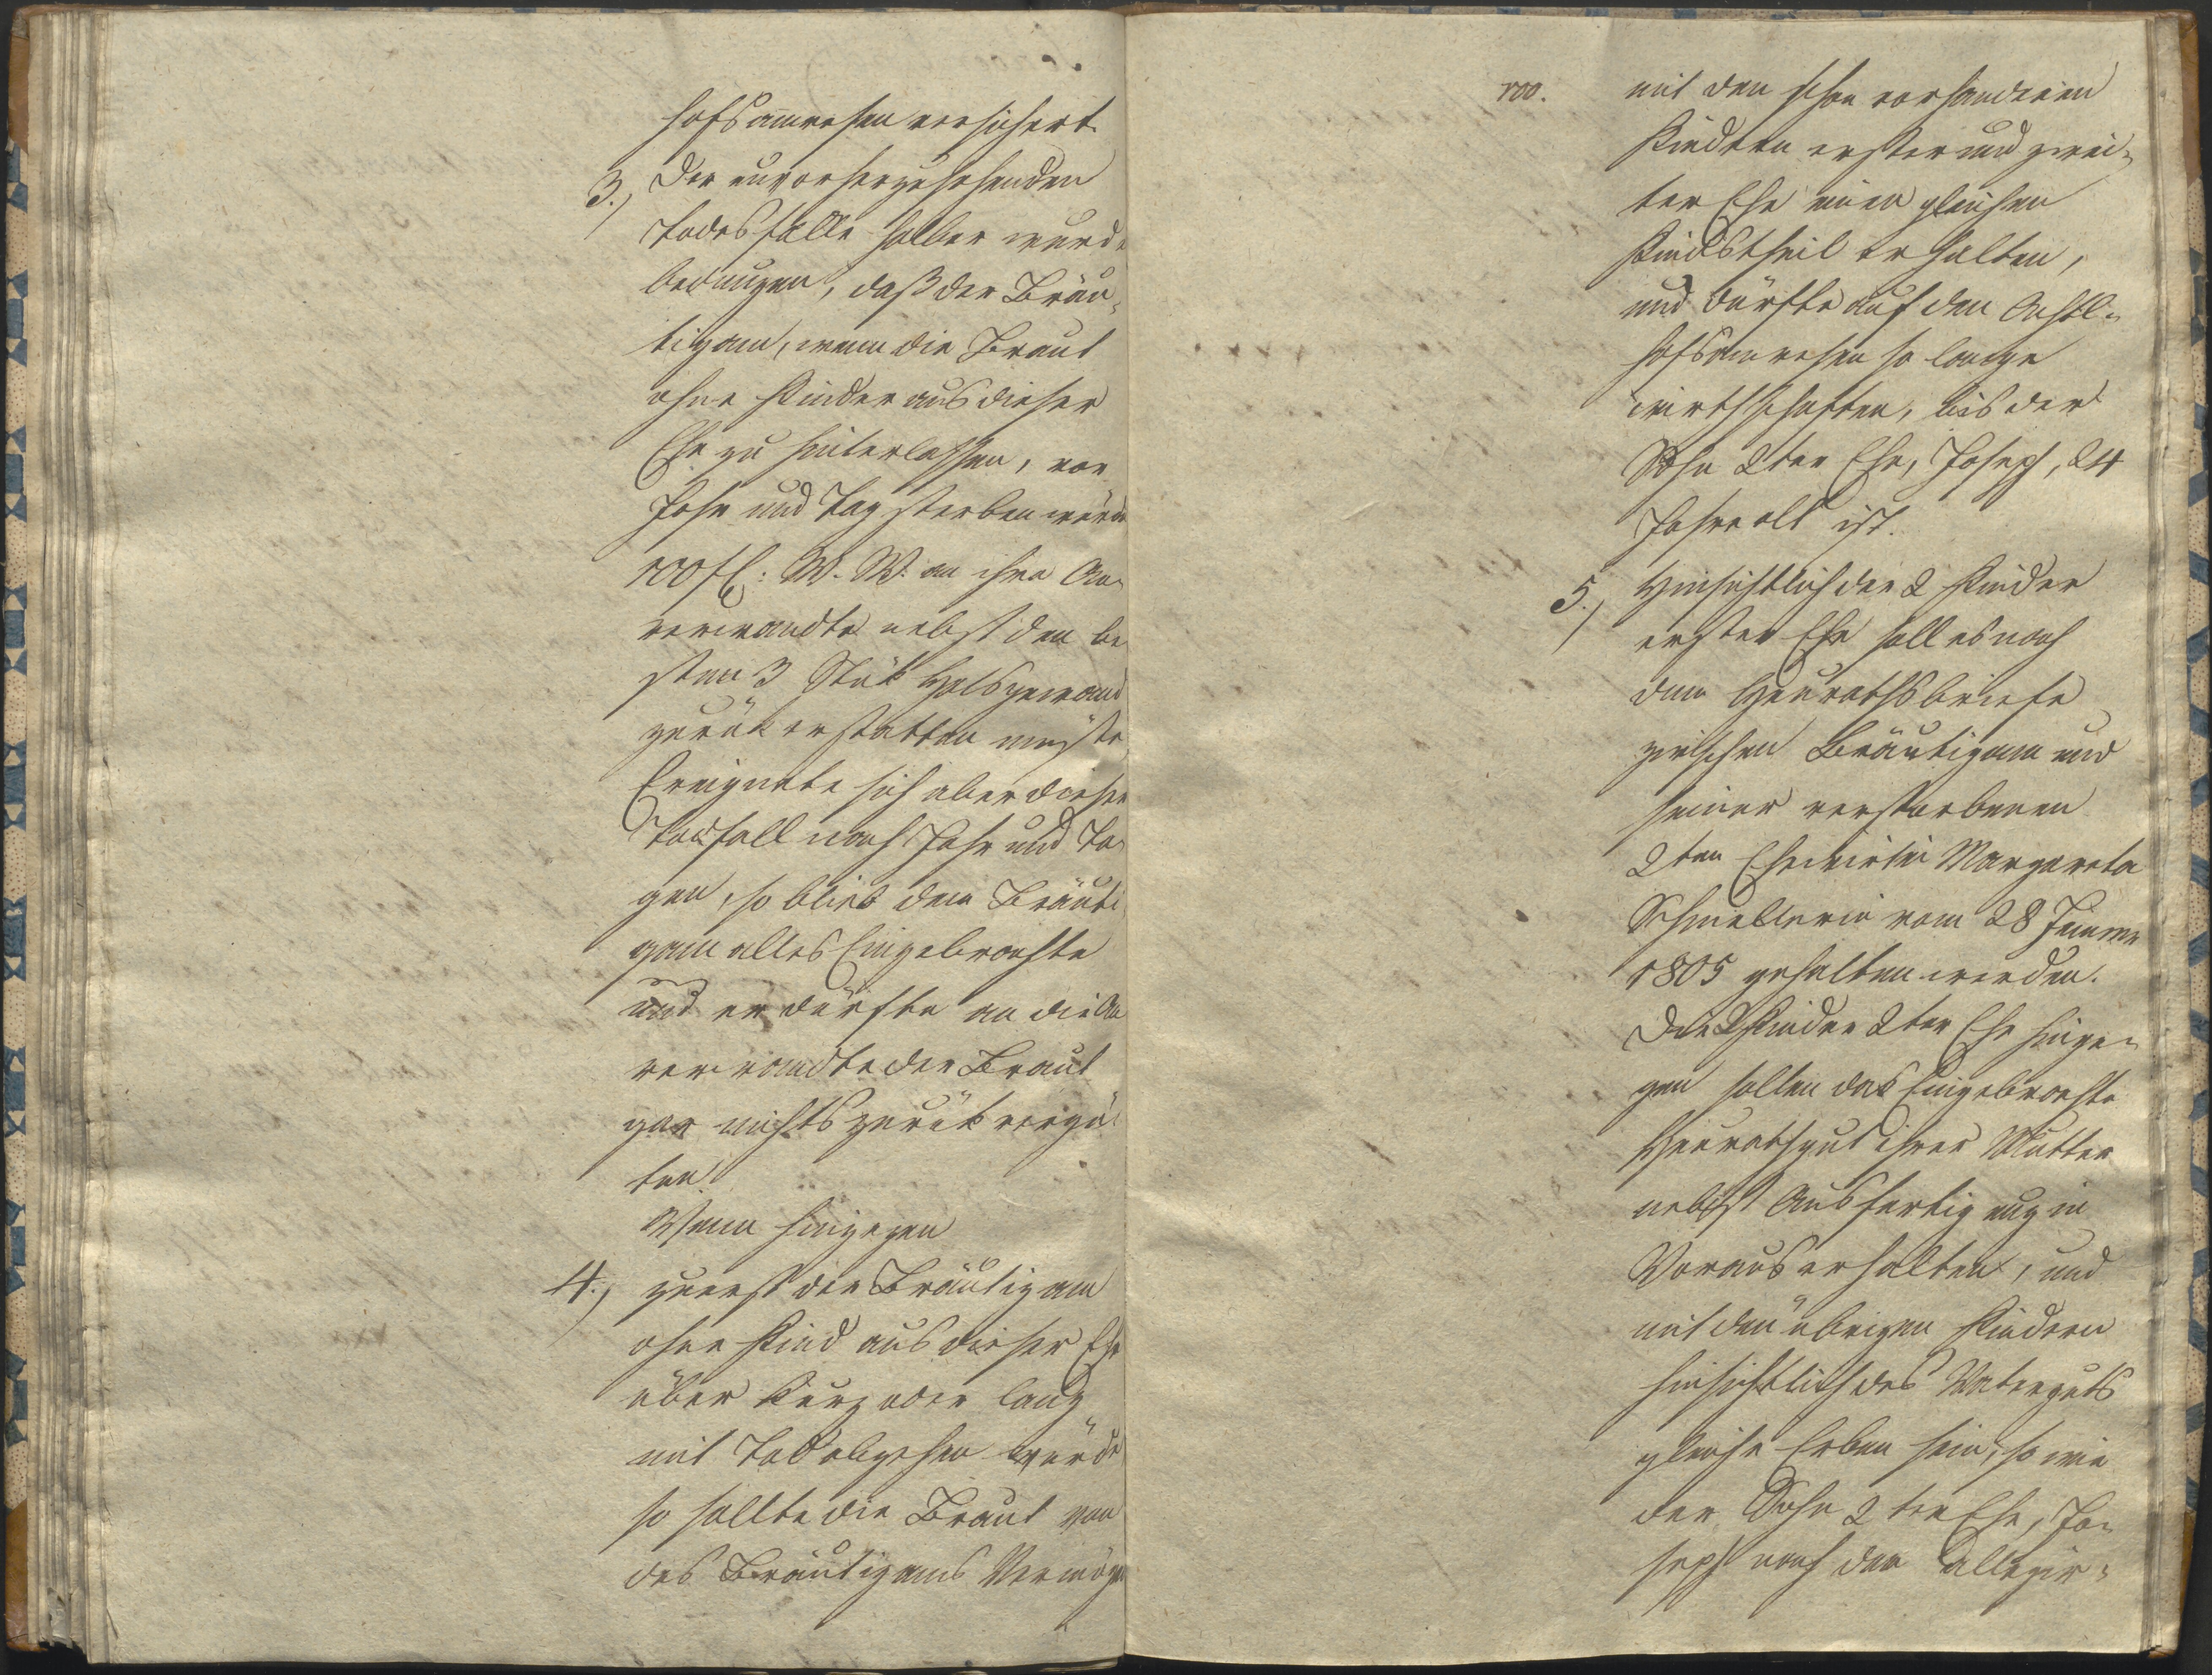 hofsanwesen versichert.
3., Der unvorherzusehenden
Todesfälle halber wurde
bedungen, daß der Bräu¬
tigam, wenn die Braut
ohne Kinder aus dieser
Ehe zu hinterlassen, vor
Jahr und Tag sterben würde
100 fl: W. W. an ihre An¬
verwandte nebst den be
sten 3 Stük Halsgewand
zurük erstatten müßte
Ereignete sich aber dieser
Todfall nach Jahr und Ta¬
gen, so blieb dem Bräuti
gam alles Eingebrachte
und er dürfte an die An
verwandte der Braut
gar nichts zurük vergü¬
ten.
Wenn hingegen
4., zuerst der Bräutigam
ohne Kind aus dieser Ehe
über kurz oder lang
mit Tod abgehen würde
so sollte die Braut von
des Bräutigams Vermögen
100.
mit den schon vorhandenen
Kindern erster und zwei¬
ter Ehe einen gleichen
Kindstheil erhalten,
und dürfte auf dem
hofsanwesen so lange
wirthschaften, bis der
Sohn 2ter Ehe, Joseph, 24
Jahre alt ist.
5., Hinsichtlich der 2 Kinder
erster Ehe soll es nach
dem Heurathsbriefe
zwischen Bräutigam und
seiner verstorbenen
2ten Ehewirtin Margareta
vom 28
1805 gehalten werden.
Die 2 Kinder 2ter Ehe hinge¬
gen sollen das Eingebrachte
Heurathgut ihrer Mutter
nebst Ausfertigung in
Voraus erhalten, und
mit den übrigen Kindern
hinsichtlich des Vaterguts
gleiche Erben sein, so wie
der Sohn 2ter Ehe, Jo¬
seph nach der allegir¬